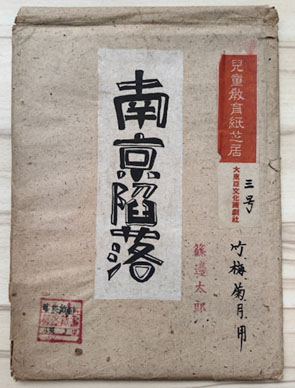 兒童敎育紙芝居
大東亞文化画劇社
三号
竹梅菊月用
南京陷落
篠邉太郎